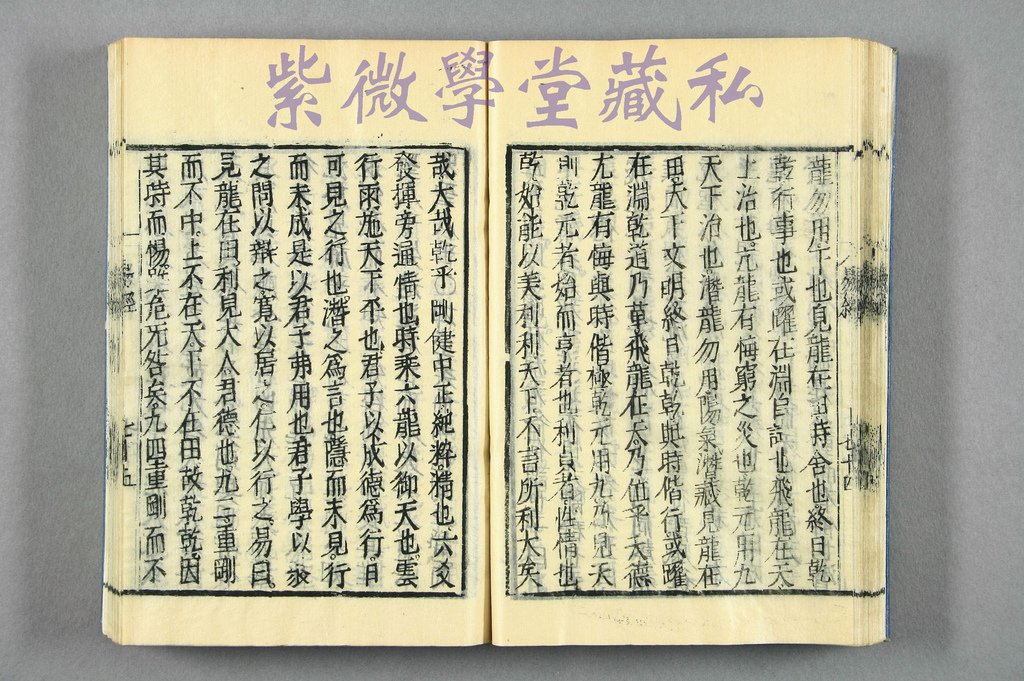 紫微學堂藏私
龍勿用下也見龍在田時舍也終日乾
乾行事也或躍在淵自試也飛龍在天
上治也亢龍有悔窮之災也乾元用九
天下治也潛龍勿用陽氣潛藏見龍在
田天下文明終日乾乾與時偕行或躍
在淵乾道乃革飛龍在天乃位乎天德
亢龍有悔與時偕極乾元用九乃見天
則乾元者始而亨者也利貞者性情也
乾始能以美利利天下不言所利大矣
易經
七十四
哉大哉乾乎剛健中正純粹精也六爻
發揮旁通情也時乘六龍以御天也雲
行雨施天下平也君子以成德為行日
可見之行也潛之為言也隱而未見行
而未成是以君子弗用也君子學以聚
之問以辯之寬以居之仁以行之易曰
見龍在田利見大人君德也九三重剛
而不中上不在天下不在田故乾乾因
其時而惕雖危无咎矣九四重剛而不
易經
七十五